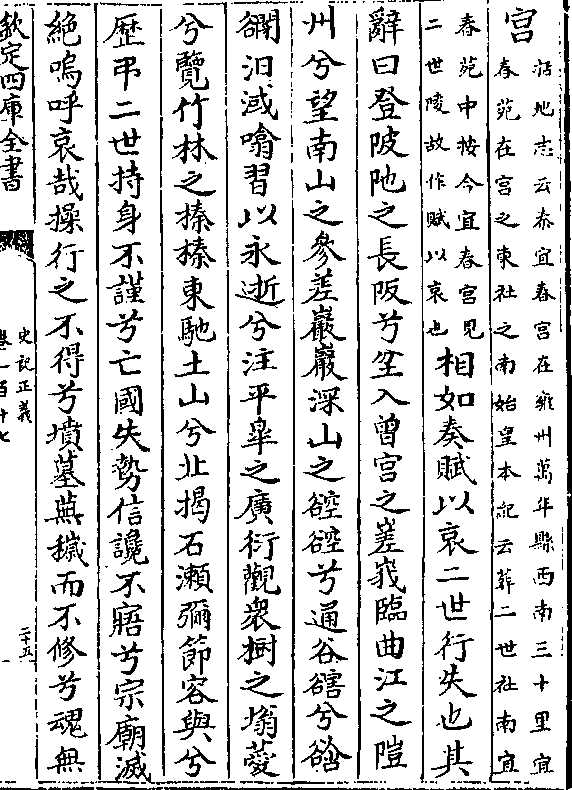 宫
括地志云秦宜春宫在雍州萬年縣西南三十里宜
春苑在宫之東杜之南始皇本紀云葬二世杜南宜
春苑中按今宜春宫見
二世陵故作賦以哀也
相如奏賦以哀二世行失也其
辭曰登陂阤之長阪兮坌入曾宫之嵳峩臨曲江之隑
州兮望南山之參差巖巖深山之谾谾兮通谷豁兮谽
谽汨淢噏習以永逝兮注平臯之廣衍觀衆樹之塕薆
兮覽竹林之榛榛東馳土山兮北揭石瀨彌節容與兮
歴弔二世持身不謹兮亡國失勢信讒不寤兮宗廟滅
絶嗚呼哀哉操行之不得兮墳墓蕪穢而不修兮魂無
欽定四庫全書
史記正義
卷一百十七
二十五